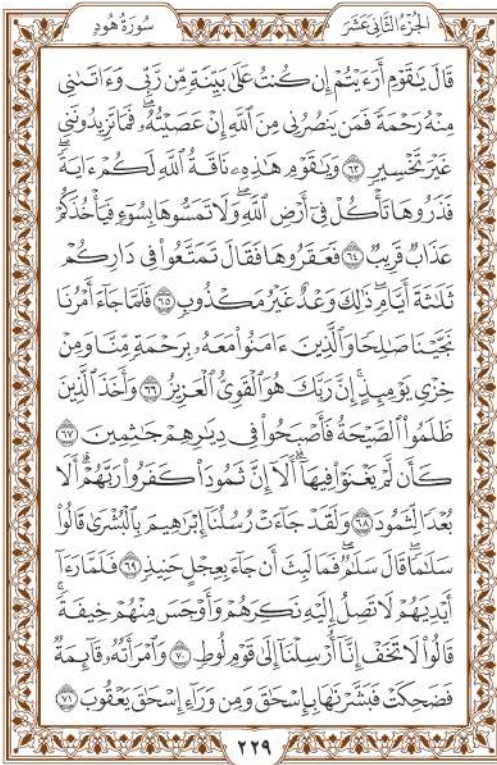 الجُزْءُ الثَّانِي عَشَرَ
سُورَةُ هُودٍ
قَالَ يَٰقَوْمِ أَرَءَيْتُمْ إِن كُنتُ عَلَىٰ بَيِّنَةٍ مِّن رَّبِّي وَءَاتَىٰنِي
مِنْهُ رَحْمَةً فَمَن يَنصُرُنِي مِنَ ٱللَّهِ إِنْ عَصَيْتُهُۥۖ فَمَا تَزِيدُونَنِي
غَيْرَ تَخْسِيرٍ ۝٦٣ وَيَٰقَوْمِ هَٰذِهِۦ نَاقَةُ ٱللَّهِ لَكُمْ ءَايَةًۖ
فَذَرُوهَا تَأْكُلْ فِيٓ أَرْضِ ٱللَّهِۖ وَلَا تَمَسُّوهَا بِسُوٓءٍ فَيَأْخُذَكُمْ
عَذَابٌ قَرِيبٌ ۝٦٤ فَعَقَرُوهَا فَقَالَ تَمَتَّعُوا۟ فِي دَارِكُمْ
ثَلَٰثَةَ أَيَّامٍۖ ذَٰلِكَ وَعْدٌ غَيْرُ مَكْذُوبٍ ۝٦٥ فَلَمَّا جَآءَ أَمْرُنَا
نَجَّيْنَا صَٰلِحًا وَٱلَّذِينَ ءَامَنُوا۟ مَعَهُۥ بِرَحْمَةٍ مِّنَّا وَمِنْ
خِزْيِ يَوْمِئِذٍۚ إِنَّ رَبَّكَ هُوَ ٱلْقَوِيُّ ٱلْعَزِيزُ ۝٦٦ وَأَخَذَ ٱلَّذِينَ
ظَلَمُوا۟ ٱلصَّيْحَةُ فَأَصْبَحُوا۟ فِي دِيَٰرِهِمْ جَٰثِمِينَ ۝٦٧
كَأَن لَّمْ يَغْنَوْا۟ فِيهَآۗ أَلَآ إِنَّ ثَمُودَا۟ كَفَرُوا۟ رَبَّهُمْۗ أَلَا
بُعْدًا لِّثَمُودَ ۝٦٨ وَلَقَدْ جَآءَتْ رُسُلُنَآ إِبْرَٰهِيمَ بِٱلْبُشْرَىٰ قَالُوا۟
سَلَٰمًاۖ قَالَ سَلَٰمٌۖ فَمَا لَبِثَ أَن جَآءَ بِعِجْلٍ حَنِيذٍ ۝٦٩ فَلَمَّا رَءَآ
أَيْدِيَهُمْ لَا تَصِلُ إِلَيْهِ نَكِرَهُمْ وَأَوْجَسَ مِنْهُمْ خِيفَةًۚ
قَالُوا۟ لَا تَخَفْ إِنَّآ أُرْسِلْنَآ إِلَىٰ قَوْمِ لُوطٍ ۝٧٠ وَٱمْرَأَتُهُۥ قَآئِمَةٌ
فَضَحِكَتْ فَبَشَّرْنَٰهَا بِإِسْحَٰقَ وَمِن وَرَآءِ إِسْحَٰقَ يَعْقُوبَ ۝٧١
٢٢٩